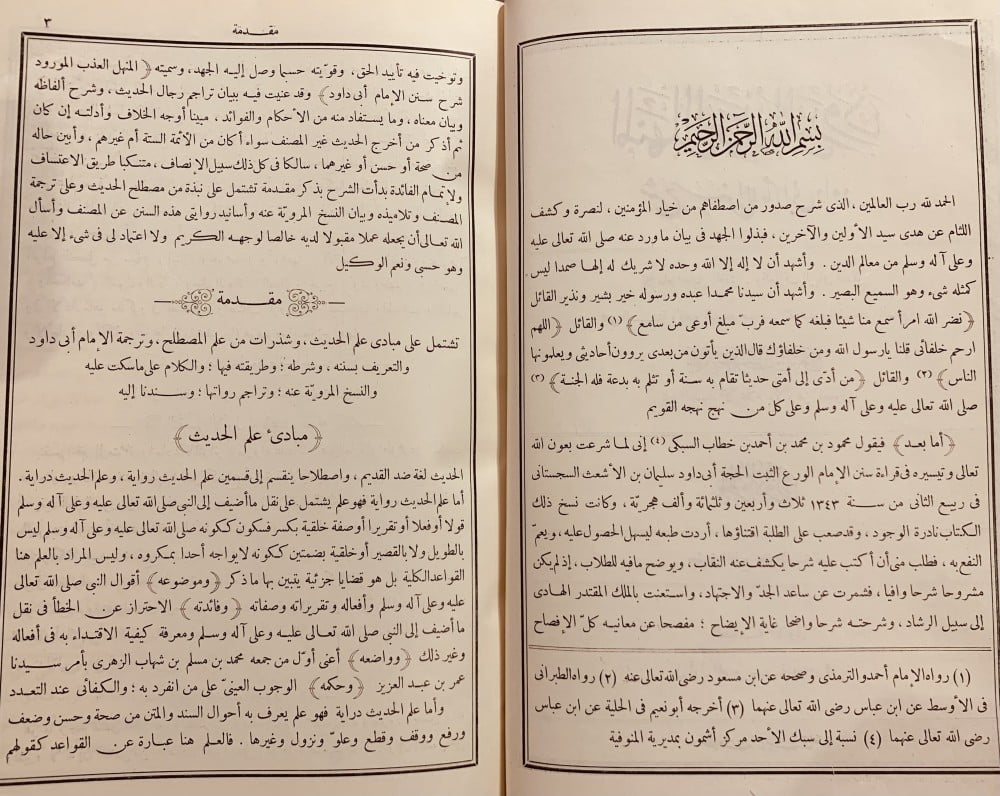 بسم الله الرحمن الرحيم
الحمد لله رب العالمين ، الذى شرح صدور من اصطفاهم من خيار المؤمنين ، لنصرة وكشف
اللثام عن هدى سيد الأولين والآخرين ، فبذلوا الجهد فى بيان ما ورد عنه صلى الله تعالى عليه
وعلى آله وسلم من معالم الدين . وأشهد أن لا إله إلا الله وحده لا شريك له إلها صمدا ليس
كمثله شىء وهو السميع البصير . وأشهد أن سيدنا محمدا عبده ورسوله خير بشير ونذير القائل
﴿نضر الله امرأ سمع منا شيئا فبلغه كما سمعه فرب مبلغ أوعى من سامع﴾ (١) والقائل ﴿اللهم
ارحم خلفائى قلنا يارسول الله ومن خلفاؤك قال الذين يأتون من بعدى يروون أحاديثى ويعلمونها
الناس﴾ (٢) والقائل ﴿من أدّى إلى أمتى حديثا تقام به سنة أو تثلم به بدعة فله الجنة﴾ (٣)
صلى الله تعالى عليه وعلى آله وسلم وعلى كل من نهج نهجه القويم
﴿أما بعد﴾ فيقول محمود بن محمد بن أحمد بن خطاب السبكى (٤) إنى لما شرعت بعون الله
تعالى وتيسيره فى قراءة سنن الإمام الورع الثبت الحجة أبى داود سليمان بن الأشعث السجستانى
فى ربيع الثانى من سنة ١٣٤٣ ثلاث وأربعين وثلثمائة وألف هجرية ، وكانت نسخ ذلك
الكتاب نادرة الوجود ، وقد صعب على الطلبة اقتناؤها ، أردت طبعه ليسهل الحصول عليه ، ويعمّ
النفع به ، فطلب منى أن أكتب عليه شرحا يكشف عنه النقاب ، ويوضح مافيه للطلاب ، إذ لم يكن
مشروحا شرحا وافيا ، فشمرت عن ساعد الجدّ والاجتهاد ، واستعنت بالملك المقتدر الهادى
إلى سبيل الرشاد ، وشرحته شرحا واضحا غاية الإيضاح ؛ مفصحا عن معانيه كلّ الإفصاح
(١) رواه الإمام أحمد والترمذى وصححه عن ابن مسعود رضى الله تعالى عنه (٢) رواه الطبرانى
فى الأوسط عن ابن عباس رضى الله تعالى عنهما (٣) أخرجه أبو نعيم فى الحلية عن ابن عباس
رضى الله تعالى عنهما (٤) نسبة إلى سبك الأحد مركز أشمون بمديرية المنوفية
مقدمة
٣
وتوخيت فيه تأييد الحق ، وقوّيته حسبما وصل إليه الجهد ، وسميته ﴿المنهل العذب المورود
شرح سنن الإمام أبى داود﴾ وقد عنيت فيه ببيان تراجم رجال الحديث ، وشرح ألفاظه
وبيان معناه ، وما يستفاد منه من الأحكام والفوائد ، مبينا أوجه الخلاف وأدلته إن كان
ثم أذكر من أخرج الحديث غير المصنف سواء أكان من الأئمة الستة أم غيرهم ، وأبين حاله
من صحة أو حسن أو غيرهما ، سالكا فى كل ذلك سبيل الإنصاف ، متنكبا طريق الاعتساف
ولإتمام الفائدة بدأت الشرح بذكر مقدمة تشتمل على نبذة من مصطلح الحديث وعلى ترجمة
المصنف وتلاميذه وبيان النسخ المروية عنه وأسانيد روايتى هذه السنن عن المصنف وأسأل
الله تعالى أن يجعله عملا مقبولا لديه خالصا لوجهه الكريم ولا اعتماد لى فى شىء إلا عليه
وهو حسبى ونعم الوكيل
مقدمة
تشتمل على مبادى علم الحديث ، وشذرات من علم المصطلح ، وترجمة الإمام أبى داود
والتعريف بسننه ، وشرطه ؛ وطريقته فيها ؛ والكلام على ماسكت عليه
والنسخ المرويّة عنه ؛ وتراجم رواتها ؛ وسندنا إليه
﴿مبادئ علم الحديث﴾
الحديث لغة ضد القديم ، واصطلاحا ينقسم إلى قسمين علم الحديث رواية ، وعلم الحديث دراية .
أما علم الحديث رواية فهو علم يشتمل على نقل ما أضيف إلى النبى صلى الله تعالى عليه وعلى آله وسلم
قولا أو فعلا أو تقريرا أو صفة خلقية بكسر فسكون ككونه صلى الله تعالى عليه وعلى آله وسلم ليس
بالطويل ولا بالقصير أو خلقية بضمتين ككونه لايواجه أحدا بمكروه ، وليس المراد بالعلم هنا
القواعد الكلية بل هو قضايا جزئية يتبين بها ما ذكر ﴿وموضوعه﴾ أقوال النبى صلى الله تعالى
عليه وعلى آله وسلم وأفعاله وتقريراته وصفاته ﴿وفائدته﴾ الاحتراز عن الخطأ فى نقل
ما أضيف إلى النبى صلى الله تعالى عليه وعلى آله وسلم ومعرفة كيفية الاقتداء به فى أفعاله
وغير ذلك ﴿وواضعه﴾ أعنى أوّل من جمعه محمد بن مسلم بن شهاب الزهرى بأمر سيدنا
عمر بن عبد العزيز ﴿وحكمه﴾ الوجوب العينىّ على من انفرد به ؛ والكفائى عند التعدد
وأما علم الحديث دراية فهو علم يعرف به أحوال السند والمتن من صحة وحسن وضعف
ورفع ووقف وقطع وعلوّ ونزول وغيرها . فالعلم هنا عبارة عن القواعد كقولهم